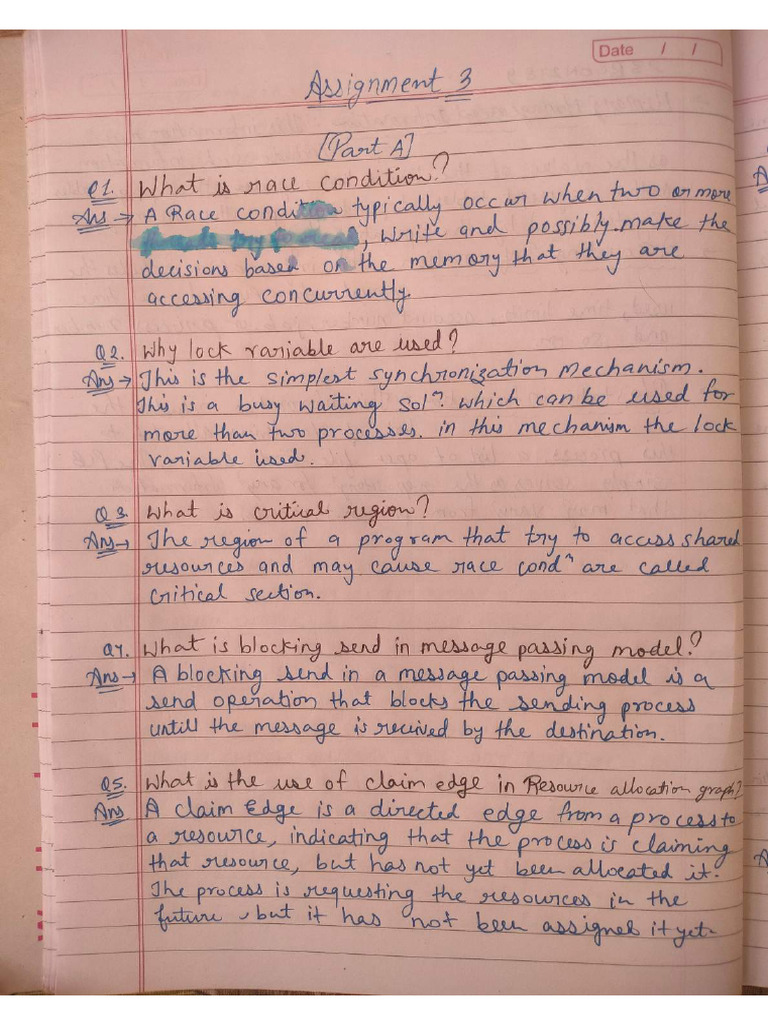 Date / /
Assignment 3
[Part A]
Q1. What is race condition?
Ans → A Race condition typically occur when two or more
, write and possibly make the
decisions based on the memory that they are
accessing concurrently.
Q2. Why lock variable are used?
Ans → This is the simplest synchronization mechanism.
This is a busy waiting solⁿ. which can be used for
more than two processes. in this mechanism the lock
variable used.
Q3. What is critical region?
Ans → The region of a program that try to access shared
resources and may cause race condⁿ are called
critical section.
Q4. What is blocking send in message passing model?
Ans → A blocking send in a message passing model is a
send operation that blocks the sending process
untill the message is recived by the destination.
Q5. What is the use of claim edge in Resource allocation graph?
Ans A claim Edge is a directed edge from a process to
a resource, indicating that the process is claiming
that resource, but has not yet been allocated it.
The process is requesting the resources in the
future, but it has not been assigned it yet.